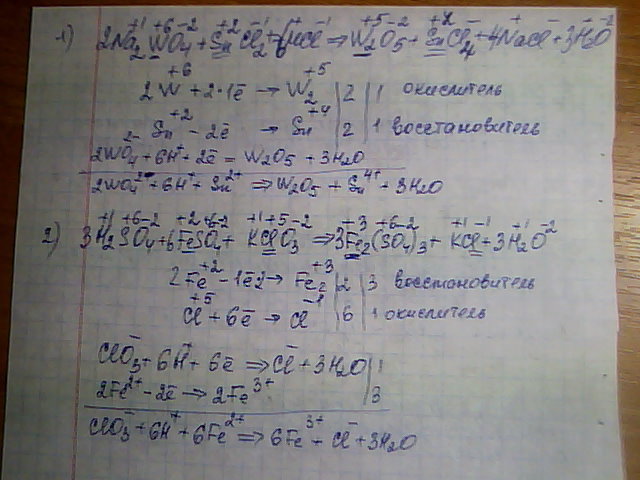 1) 2Na₂⁺¹W⁺⁶O₄⁻² + Sn⁺²Cl₂⁻¹ + 6HCl⁻¹ ⇒ W₂⁺⁵O₅⁻² + Sn⁺⁴Cl₄⁻ + 4Na⁺Cl⁻ + 3H₂⁺O⁻²
2W⁺⁶ + 2·1ē → W₂⁺⁵ | 2 | 1 окислитель
Sn⁺² - 2ē → Sn⁺⁴ | 2 | 1 восстановитель
2WO₄²⁻ + 6H⁺ + 2ē = W₂O₅ + 3H₂O
2WO₄²⁻ + 6H⁺ + Sn²⁺ ⇒ W₂O₅ + Sn⁴⁺ + 3H₂O
2) 3H₂⁺¹S⁺⁶O₄⁻² + 6Fe⁺²S⁺⁶O₄⁻² + K⁺¹Cl⁺⁵O₃⁻² ⇒ 3Fe₂⁺³(S⁺⁶O₄⁻²)₃ + K⁺¹Cl⁻¹ + 3H₂⁺¹O⁻²
2Fe⁺² - 1ē2 → Fe₂⁺³ | 2 | 3 восстановитель
Cl⁺⁵ + 6ē → Cl⁻¹ | 6 | 1 окислитель
ClO₃⁻ + 6H⁺ + 6ē ⇒ Cl⁻ + 3H₂O | 1
2Fe²⁺ - 2ē → 2Fe³⁺ | 3
ClO₃⁻ + 6H⁺ + 6Fe²⁺ ⇒ 6Fe³⁺ + Cl⁻ + 3H₂O